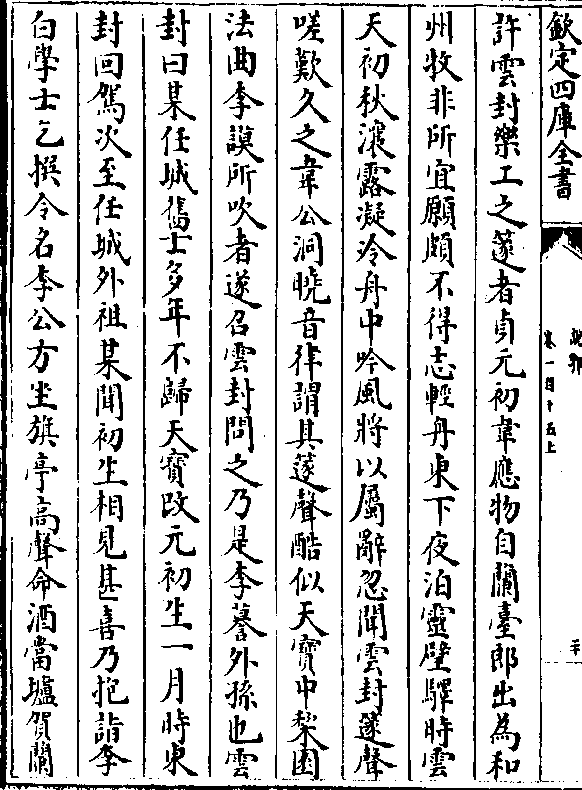 欽定四庫全書
說郛
卷一百十五上
二十
許雲封樂工之篴者貞元初韋應物自蘭臺郎出為和
州牧非所宜願頗不得志輕舟東下夜泊靈壁驛時雲
天初秋瀼露凝冷舟中吟風將以屬辭忽聞雲封篴聲
嗟歎久之韋公洞曉音律謂其篴聲酷似天寶中梨園
法曲李謨所吹者遂召雲封問之乃是李謩外孫也雲
封曰某任城舊士多年不歸天寶改元初生一月時東
封回駕次至任城外祖某聞初生相見甚喜乃抱詣李
白學士乞撰令名李公方坐旗亭高聲命酒當壚賀蘭